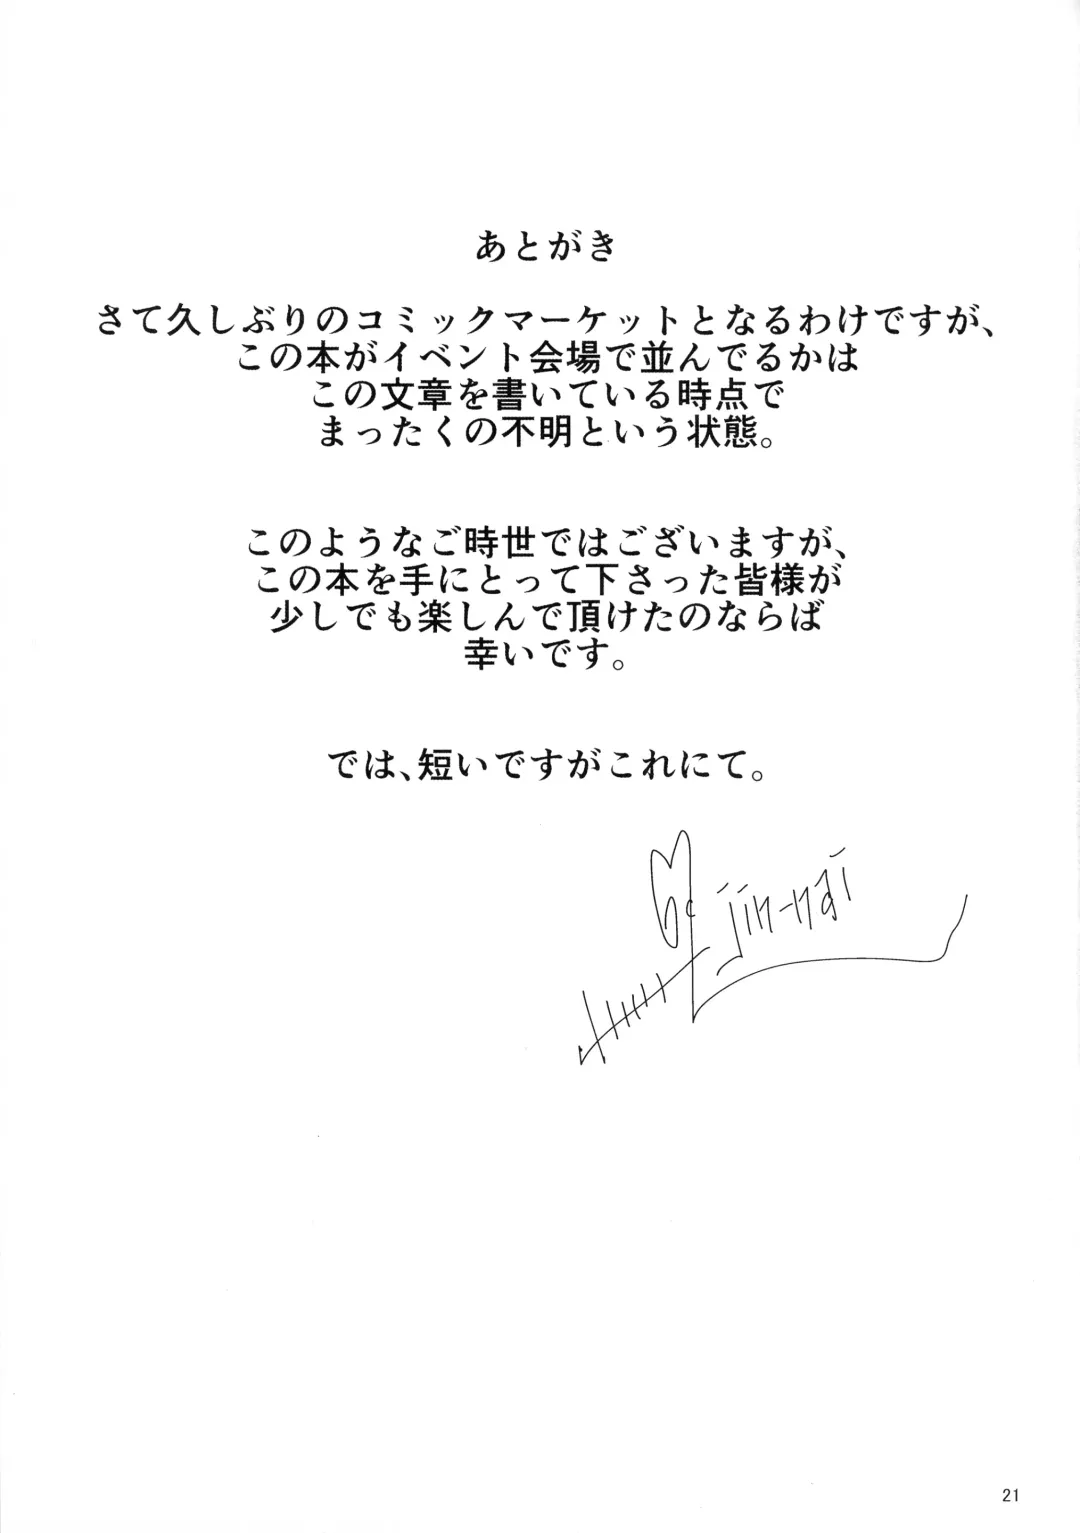 あとがき
さて久しぶりのコミックマーケットとなるわけですが、
この本がイベント会場で並んでるかは
この文章を書いている時点で
まったくの不明という状態。
このようなご時世ではございますが、
この本を手にとって下さった皆様が
少しでも楽しんで頂けたのならば
幸いです。
では、短いですがこれにて。
jin-nai
21